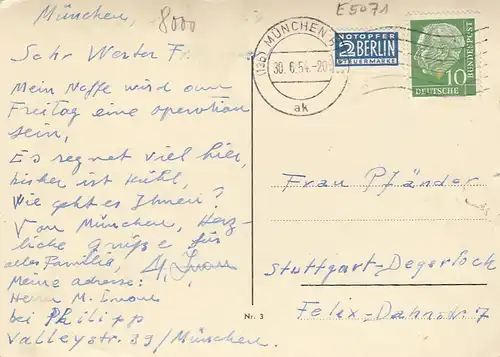 München,
8000
E5071
Sehr Werter Fr.
Mein Neffe wird am
Freitag eine operation
sein,
Es regnet viel hier,
bisher ist Kühl,
Wie geht es Ihnen?
Von München, Herz-
liche grüße für
alles Familia, M. Imous
Meine adresse:
Herrn M. Imous
bei Philipp
Valleystr. 39/München.
(13b) MÜNCHEN
30.6.54.-20
ak
NOTOPFER
2 BERLIN
STEUERMARKE
10
DEUTSCHE BUNDESPOST
Frau Pfänder
Stuttgart-Degerloch
Felix-Dahnstr. 7
Nr. 3